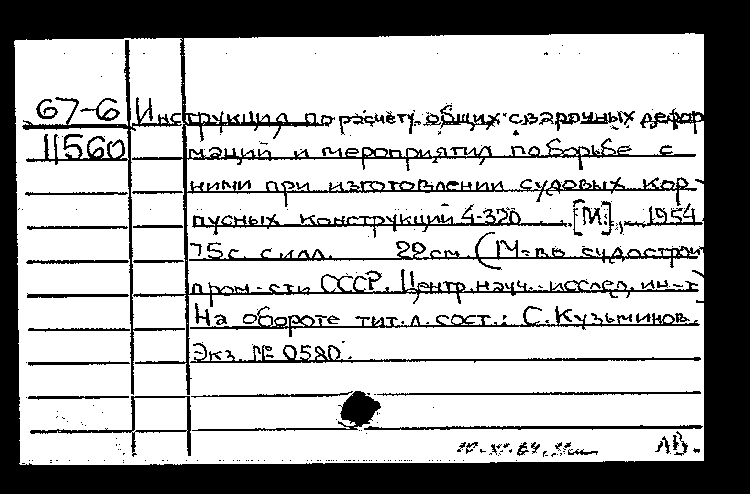 67-6 Инструкция по расчёту общих сварочных дефор
11560 маций и мероприятия по борьбе с
ними при изготовлении судовых кор-
пусных конструкций 4-320 [М.], 1954
75 с. с илл. 22 см. (М-во судострои
пром-сти СССР. Центр. науч.-исслед. ин-т)
На обороте тит. л. сост.: С. Кузьминов.
Экз. № 0580.
ЛВ.